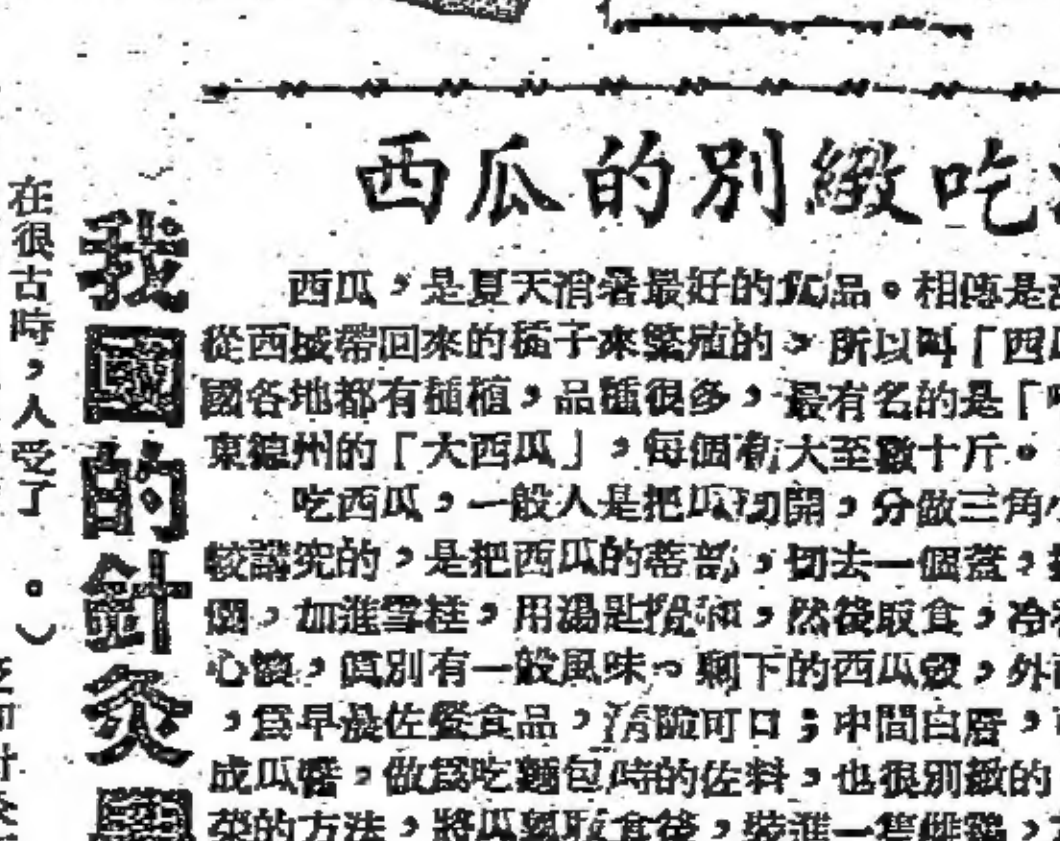 西瓜的別緻吃
西瓜，是夏天消暑最好的飲品。相傳是
從西域帶回來的種子來繁殖的，所以叫「西
國各地都有種植，品種很多，最有名的是「
東德州的「大西瓜」，每個有大至數十斤。
吃西瓜，一般人是把瓜切開，分做三角
較講究的，是把西瓜的蒂部，切去一個蓋，
個，加進雪糕，用湯匙攪和，然後取食，冷
心頭，真別有一般風味。剩下的西瓜殼，外
，爲早晨佐餐食品，清脆可口；中間白層，
成瓜醬，做爲吃麵包時的佐料，也很別緻的
菜的方法，將瓜瓤取食後，裝進一隻雌鷄，
我國的針灸
在很古時，人受了
。）